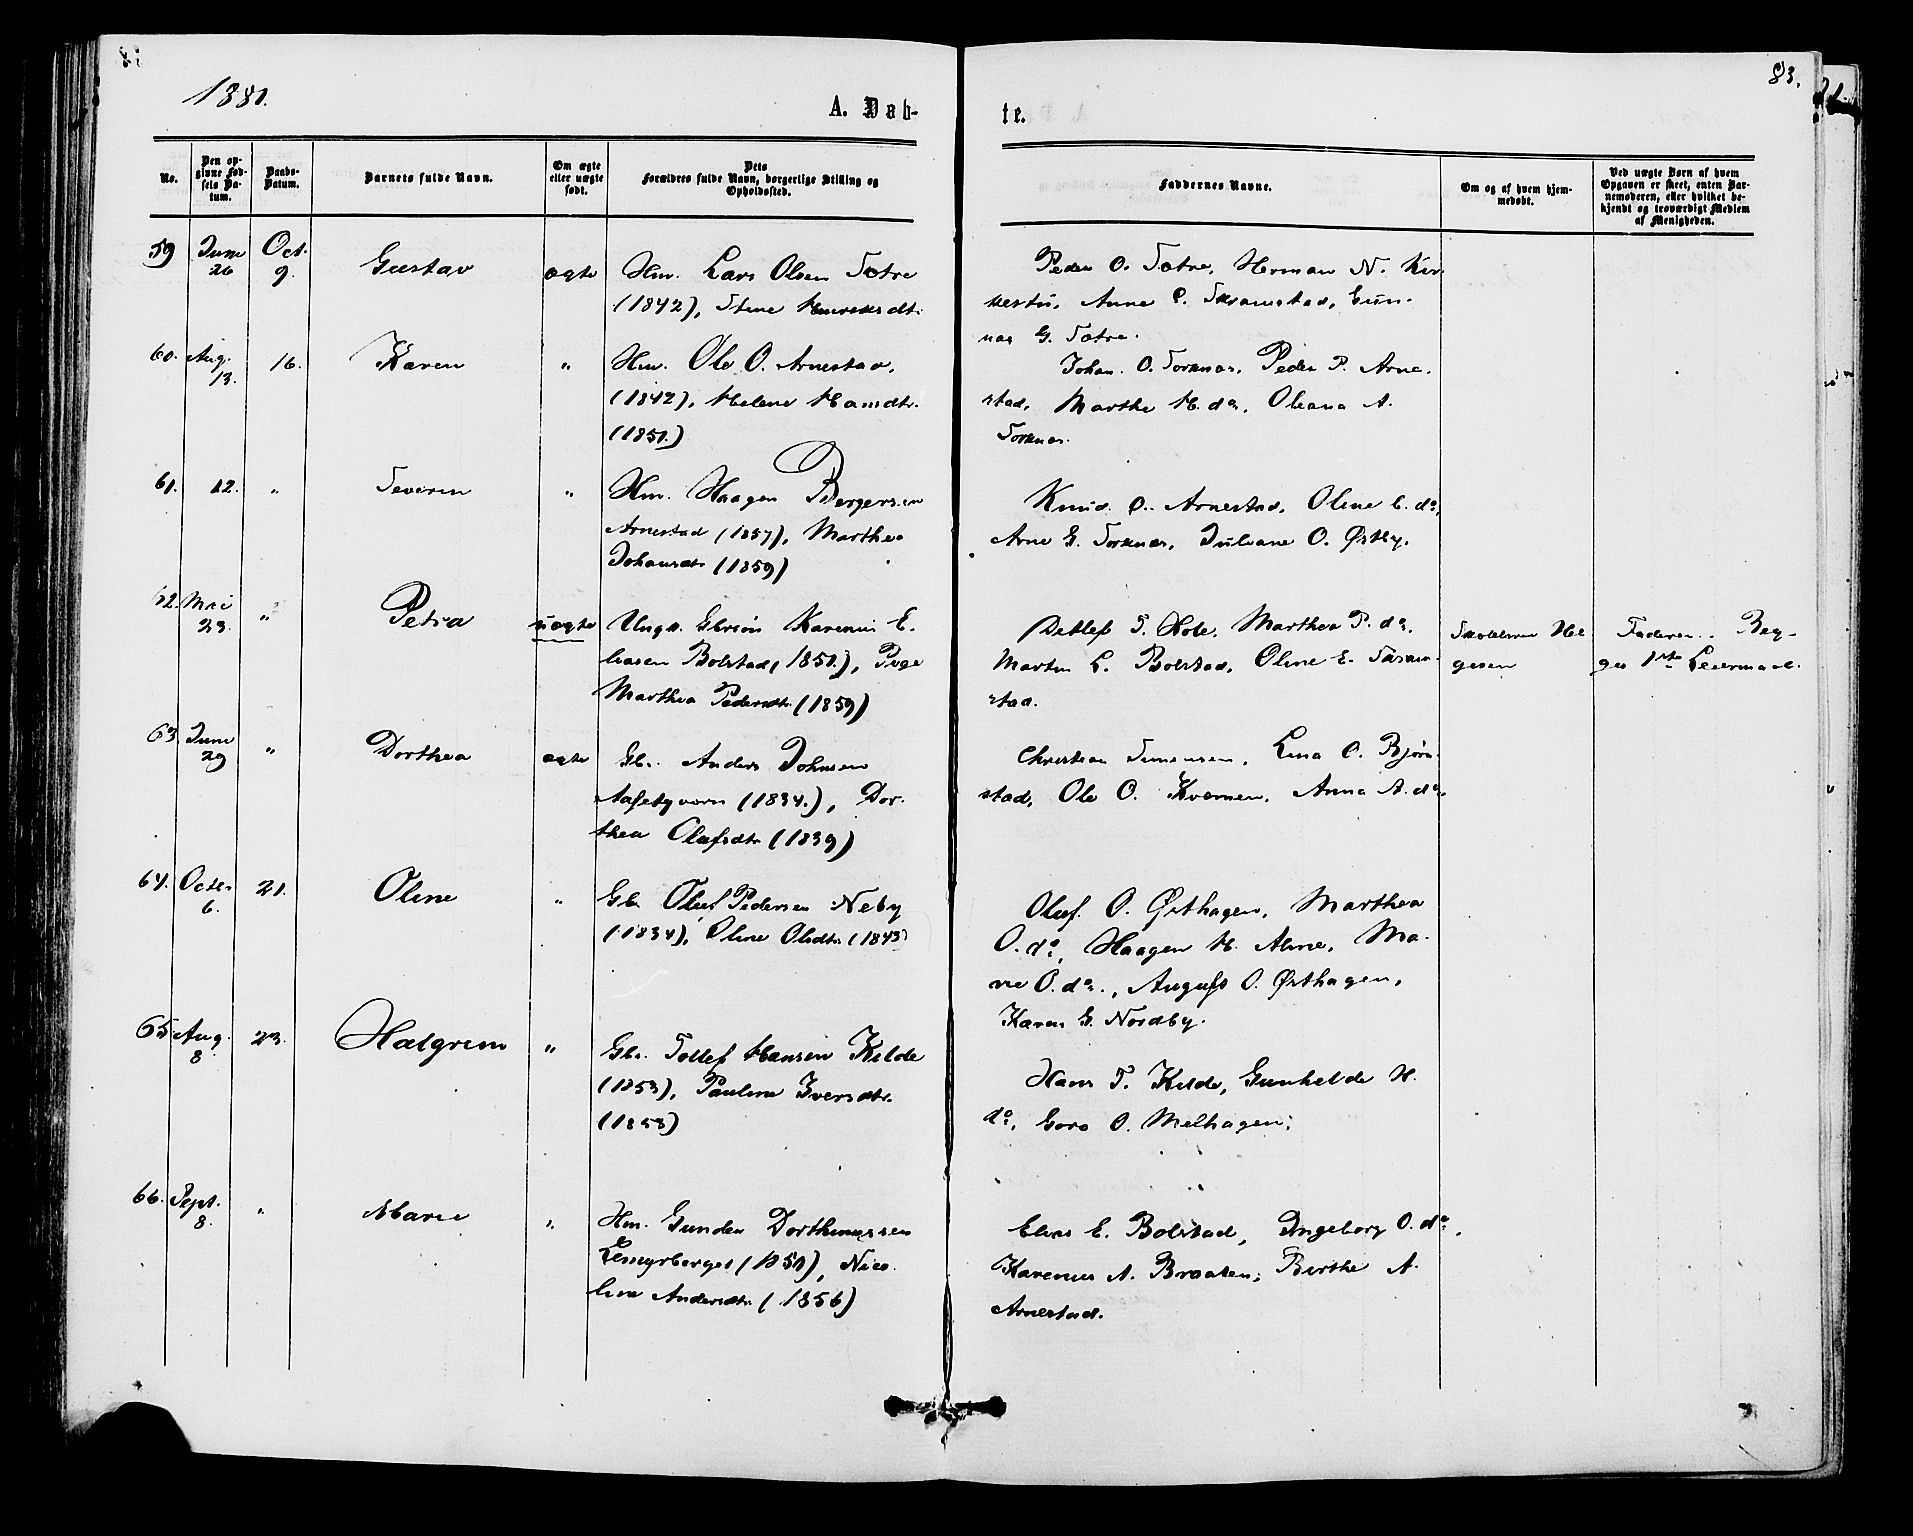 1881.
A. Døb-
te.
83.
No.
Den op-
givne Fød-
sels Da-
tum.
Daabs-
Datum.
Barnets fulde Navn.
Om ægte
eller uægte
født.
Dets
Forældres fulde Navn, borgerlige Stilling og
Opholdssted.
Faddernes Navne.
Om og af hvem hjem-
medøbt.
Ved uægte Børn af hvem
Opgaven er skeet, enten Bar-
nemoderen, eller hvilket be-
kjendt og troværdigt Medlem
af Menigheden.
59 Juni 26 Oct. 9. Gustav ægte
Hm. Lars Olsen Sætre
(1842), Stine
Peder O. Sætre, Herman N.
Anne
G. Sætre.
60. Aug. 13. 16. Karen "
Hm. Ole O. Arnestad,
(1842), Helene Hansdtr.
(1851.)
Johan O. Torsnæs, Peder P. Arne-
stad, Marthe H. do., Oleana A.
Torsnæs.
61. 12. " Severin "
Hm. Haagen Bergersen
Arnestad (1857), Marthea
Johansdtr (1859)
Knud O. Arnestad, Oline C. do,
Arne G. Torsnæs, Juliane O. Østby.
62. Mai 23. " Petra uægte
Ungk. Karenius E-
liasen Bolstad (1851.), Pige
Marthea Pedersdtr. (1859)
Detlef T. Hole, Marthea P. do.,
Martin L. Bolstad, Oline E. Skram-
stad.
Skolelærer Hel-
gesen
Faderen. Beg-
ges 1ste Leiermaal.
63. Juni 29 " Dorthea ægte
Gbr. Anders Johnsen
(1834.), Dor-
thea Olafsdtr (1839)
Christian Simensen, Lina O. Bjørn-
stad, Ole O. Kværnen, Anna A. do.
64. Octbr. 6. 21. Oline "
Gbr. Oluf Pedersen Neby
(1834), Oline Olsdtr. (1843)
Oluf O. Østhagen, Marthea
O. do, Haagen H. Alme, Ma-
rie O. do., August O. Østhagen,
Karen G. Nordby.
65 Aug. 8 23. Halgrim "
Gbr. Tollef Hansen Kilde
(1853), Pauline Iversdtr.
(1858)
Hans T. Kilde, Gunhilde H.
do, Goro O. Melhagen;
66. Sept. 8. " Marie "
Hm. Gunder Dorthinussen
(1851), Nico-
line Andersdtr. (1856)
Elias E. Bolstad, Ingeborg O. do,
Karenius A. Braaten; Berthe A
Arnestad.